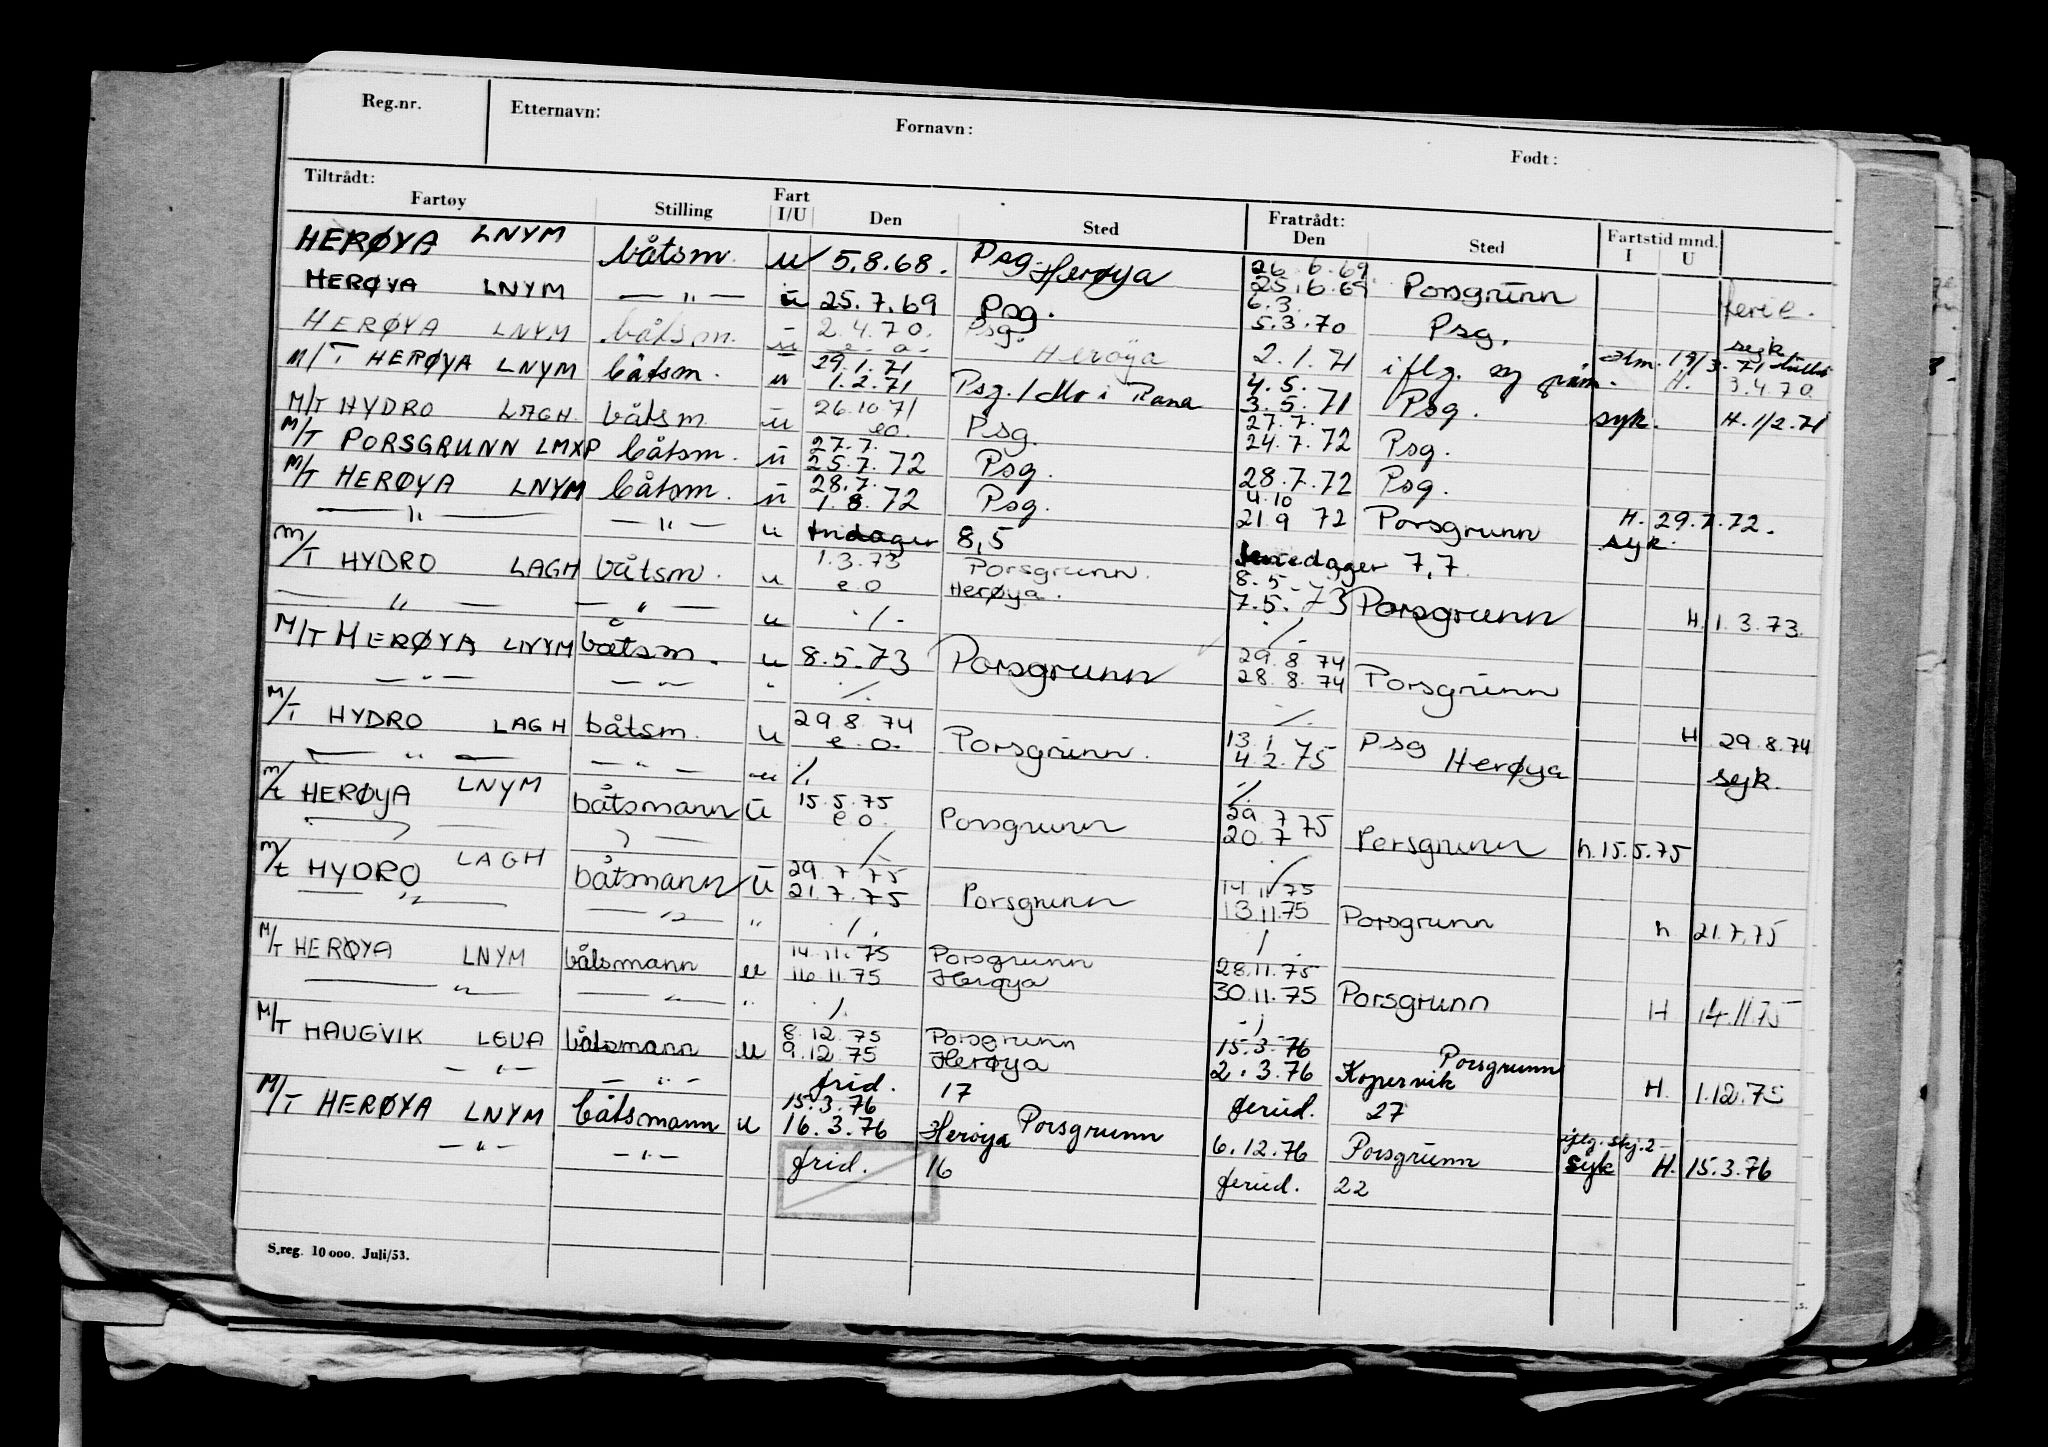 Reg.nr. Etternavn: Fornavn: Født:
Tiltrådt: Fratrådt: Fartstid mnd.
Fartøy Stilling Fart I/U Den Sted Den Sted I U
HERØYA LNYM båtsm. u 5.8.68. Psg. Herøya 26.6.69 25.6.69 Porsgrunn ferie.
HERØYA LNYM — " — u 25.7.69 Psg. 6.3. 5.3.70 Psg. syk
HERØYA LNYM båtsm. u 2.4.70. e.o. Psg. Herøya 2.1.71 iflg. 19/3.71 H. 3.4.70
M/T HERØYA LNYM båtsm. u 29.1.71 1.2.71 Psg. / Mo i Rana 4.5. 3.5.71 Psg. syk. H. 1/2.71
M/T HYDRO LAGH båtsm. u 26.10.71 eo. Psg. 27.7. 24.7.72 Psg.
M/T PORSGRUNN LMXP båtsm. u 27.7. 25.7.72 Psg. 28.7.72 Psg.
M/T HERØYA LNYM båtsm. u 28.7. 1.8.72 Psg. 4.10 21.9 72 Porsgrunn H. 29.7.72.
— " — — " — u fridager 8,5 feriedager 7,7 syk.
M/T HYDRO LAGH båtsm. u 1.3.73 e.o Porsgrunn. Herøya. 8.5- 7.5.-73 Porsgrunn H. 1.3.73.
— " — — " — u ./. ./.
M/T HERØYA LNYM båtsm. u 8.5.73 Porsgrunn 29.8.74 28.8.74 Porsgrunn
— " — — " — " ./. ./.
M/T HYDRO LAGH båtsm. u 29.8.74 e.o. Porsgrunn. 13.1 4.2.75 Psg Herøya H 29.8.74
— " — — " — u ./. ./. syk.
m/t HERØYA LNYM båtsmann u 15.5.75 e.o. Porsgrunn 29.7.75 20.7 Porsgrunn h.15.5.75
— " — — " — ./. ./.
m/t HYDRO LAGH båtsmann u 29.7.75 21.7.75 Porsgrunn 14.11.75 13.11.75 Porsgrunn h 21.7.75
— " — — " — " ./. ./.
M/T HERØYA LNYM båtsmann u 14.11.75 16.11.75 Porsgrunn Herøya 28.11.75 30.11.75 Porsgrunn H 14.11.75
— " — — " — " ./. ./.
M/T HAUGVIK LGUA båtsmann u 8.12.75 9.12.75 Porsgrunn Herøya 15.3.76 2.3.76 Porsgrunn Kopervik H. 1.12.75
— " — — " — frid. 17 feried. 27
M/T HERØYA LNYM båtsmann u 15.3.76 16.3.76 Herøya Porsgrunn 6.12.76 Porsgrunn iflg. skj. 2 syk H. 15.3.76
— " — — " — frid. 16 feried. 22
S.reg. 10 000. Juli/53.